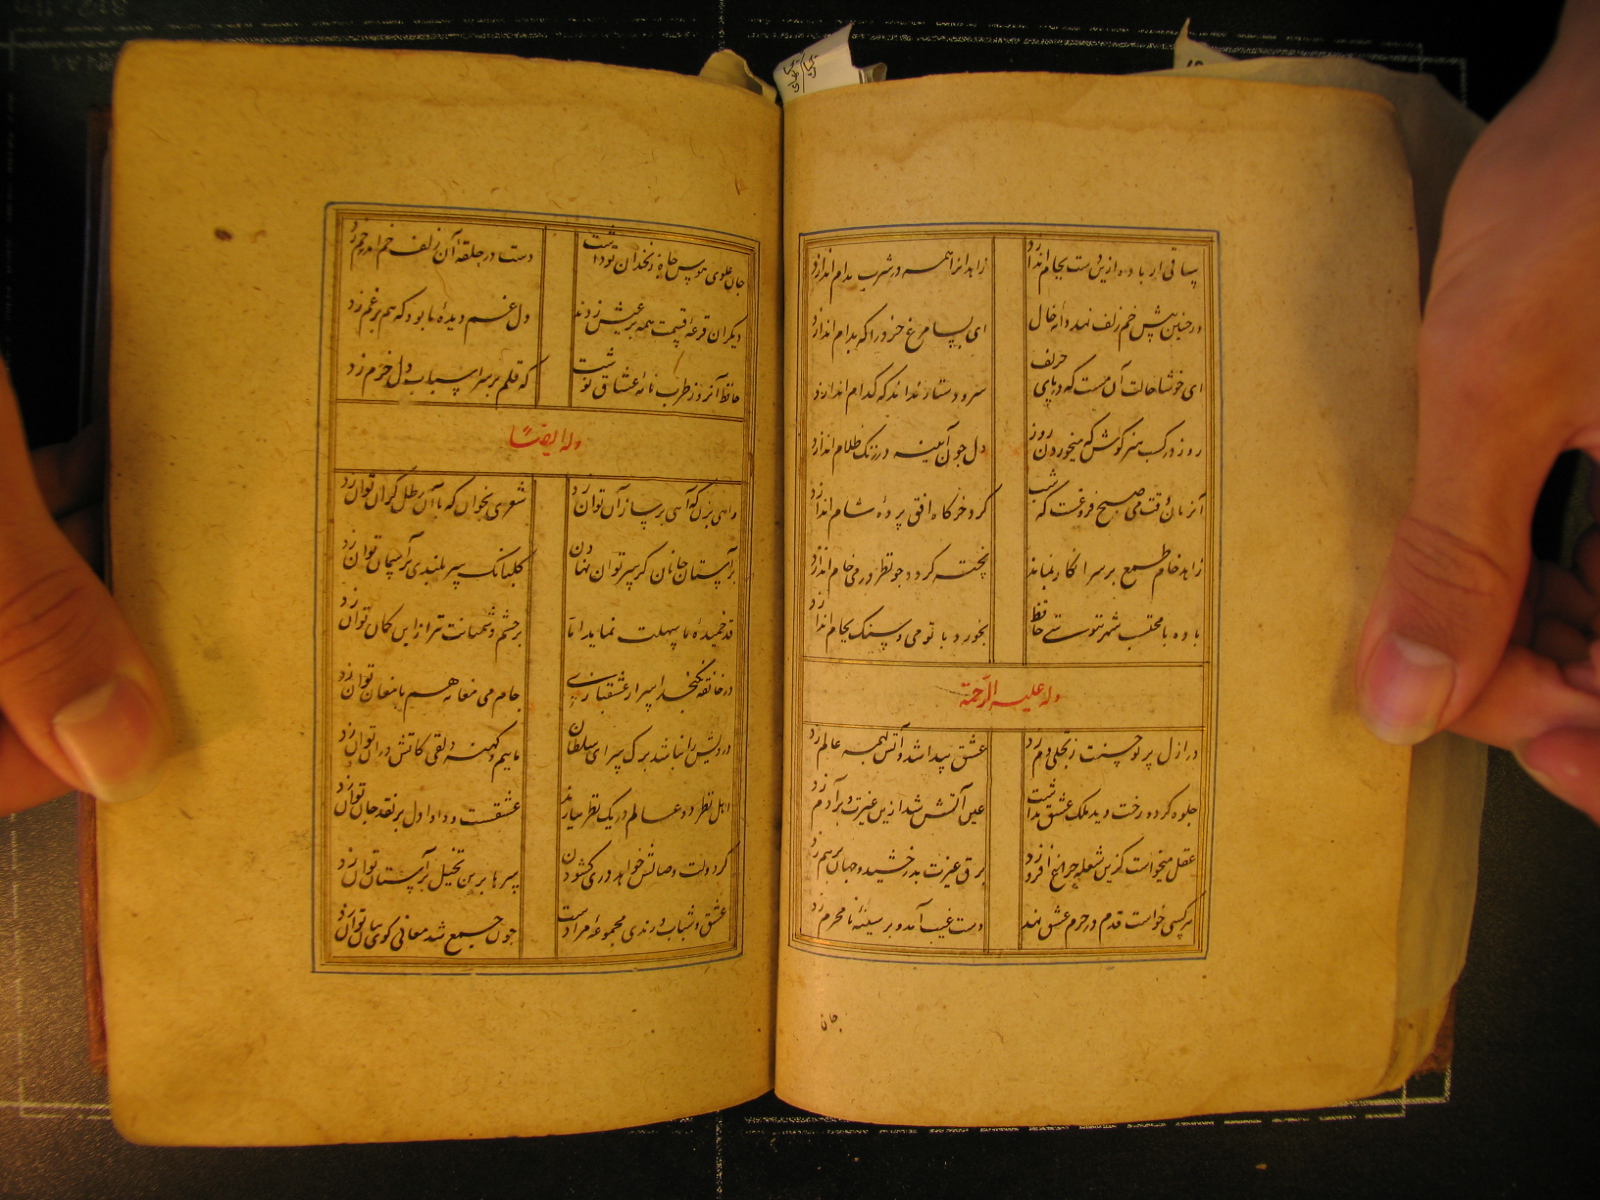 ساقی ار باده ازین دست بجام اندازد زاهدانرا همه در شرب مدام اندازد
ور چنین پیش خم زلف نهد دانه خال ای بسا مرغ خرد را که بدام اندازد
ای خوشا حالت آن مست که در پای حریف سر و دستار نداند که کدام اندازد
روز در کسب هنر کوش که میخوردن روز دل چون آینه در زنک ظلام اندازد
آنزمان وقت می صبح فروغست که شب کرد خرکاه افق پرده شام اندازد
زاهد خام طمع بر سر انکار بماند پخته کردد چو نظر در می خام اندازد
باده با محتسب شهر ننوشی حافظ بخورد با تو می و سنک بجام اندازد
وله علیه الرحمة
در ازل پرتو حسنت ز تجلی دم زد عشق پیدا شد و آتش بهمه عالم زد
جلوه کرد رخت دید ملک عشق نداشت عین آتش شد ازین غیرت و بر آدم زد
عقل میخواست کزین شعله چراغ افروزد برق غیرت بدرخشید و جهان برهم زد
هرکسی خواست قدم در حرم عشق نهد دست غیب آمد و بر سینه نامحرم زد
جان
جان علوی هوس چاه زنخدان تو داشت دست در حلقه آن زلف خم اندر خم زد
دیکران قرعه قسمت همه بر عیش زدند دل غم دیده ما بود که هم بر غم زد
حافظ آنروز طرب نامه عشاق نوشت که قلم بر سر اسباب دل خرم زد
وله ایضا
راهی بزن که آهی بر ساز آن توان زد شعری بخوان که با آن رطل کران توان زد
بر آستان جانان کر سر توان نهادن کلبانک سربلندی بر آسمان توان زد
قد خمیده ما سهلت نماید اما بر چشم دشمنانت تیر از این کمان توان زد
در خانقه نکنجد اسرار عشقبازی جام می مغانه هم با مغان توان زد
درویش را نباشد برک سرای سلطان ماییم و کهنه دلقی کاتش در آن توان زد
اهل نظر دو عالم در یک نظر ببازند عشقست و داو اول بر نقد جان توان زد
کر دولت وصالش خواهد دری کشودن سرها برین تخیل بر آستان توان زد
عشق و شباب و رندی مجموعه مرادست چون جمع شد معانی کوی بیان توان زد